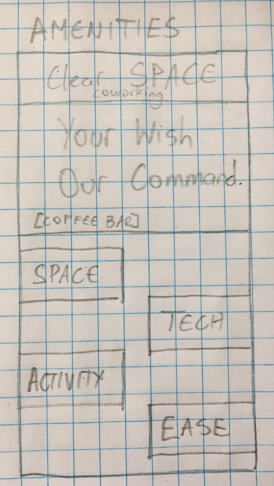 AMENITIES
Clear SPACE
coworking
Your Wish
Our Command.
[COFFEE BAR]
SPACE
TECH
ACTIVITY
EASE